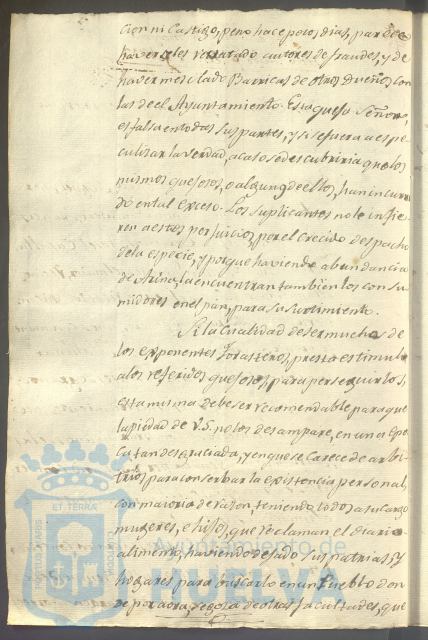 cion ni Castigo, pero hace pocos dias, por
haverseles retratado autores de fraudes, y de
haver mesclado Barricas de otros Dueños con
las de el Ayuntamiento. Esta quefa Señor,
es falsa en todas sus partes, y si se fuera a espe
culizar la verdad, acaso se descubriria que los
mismos quefosos, o algunos de ellos, han incurri
do en tal exceso. Los suplicantes no le infie
ren a estos perjuicios, por el crecido despacho
de la especie, y porque haviendo abundancia
de Arina, la encuentran tambien los consu
midores en el pan, para su surtimiento.
Si la Cualidad de ser muchos de
los exponentes Forasteros, presta estimulo
a los referidos quefosos, para perseguirlos,
esta misma debe ser recomendable para que
la piedad de V.S. no los desampare, en una Epo
ca tan desgraciada, y en que se carece de arbi
trios para conserbar la existencia personal,
con maioria de razon, teniendo todos a su cargo
mugeres, e hijos, que reclaman el diario
alimento, haviendo dejado sus patrias, y
hogares para buscarlo en un Pueblo don
de por aora, se goza de otras facultades, que
ET TERRAE
Ayuntamiento de
HUELVA